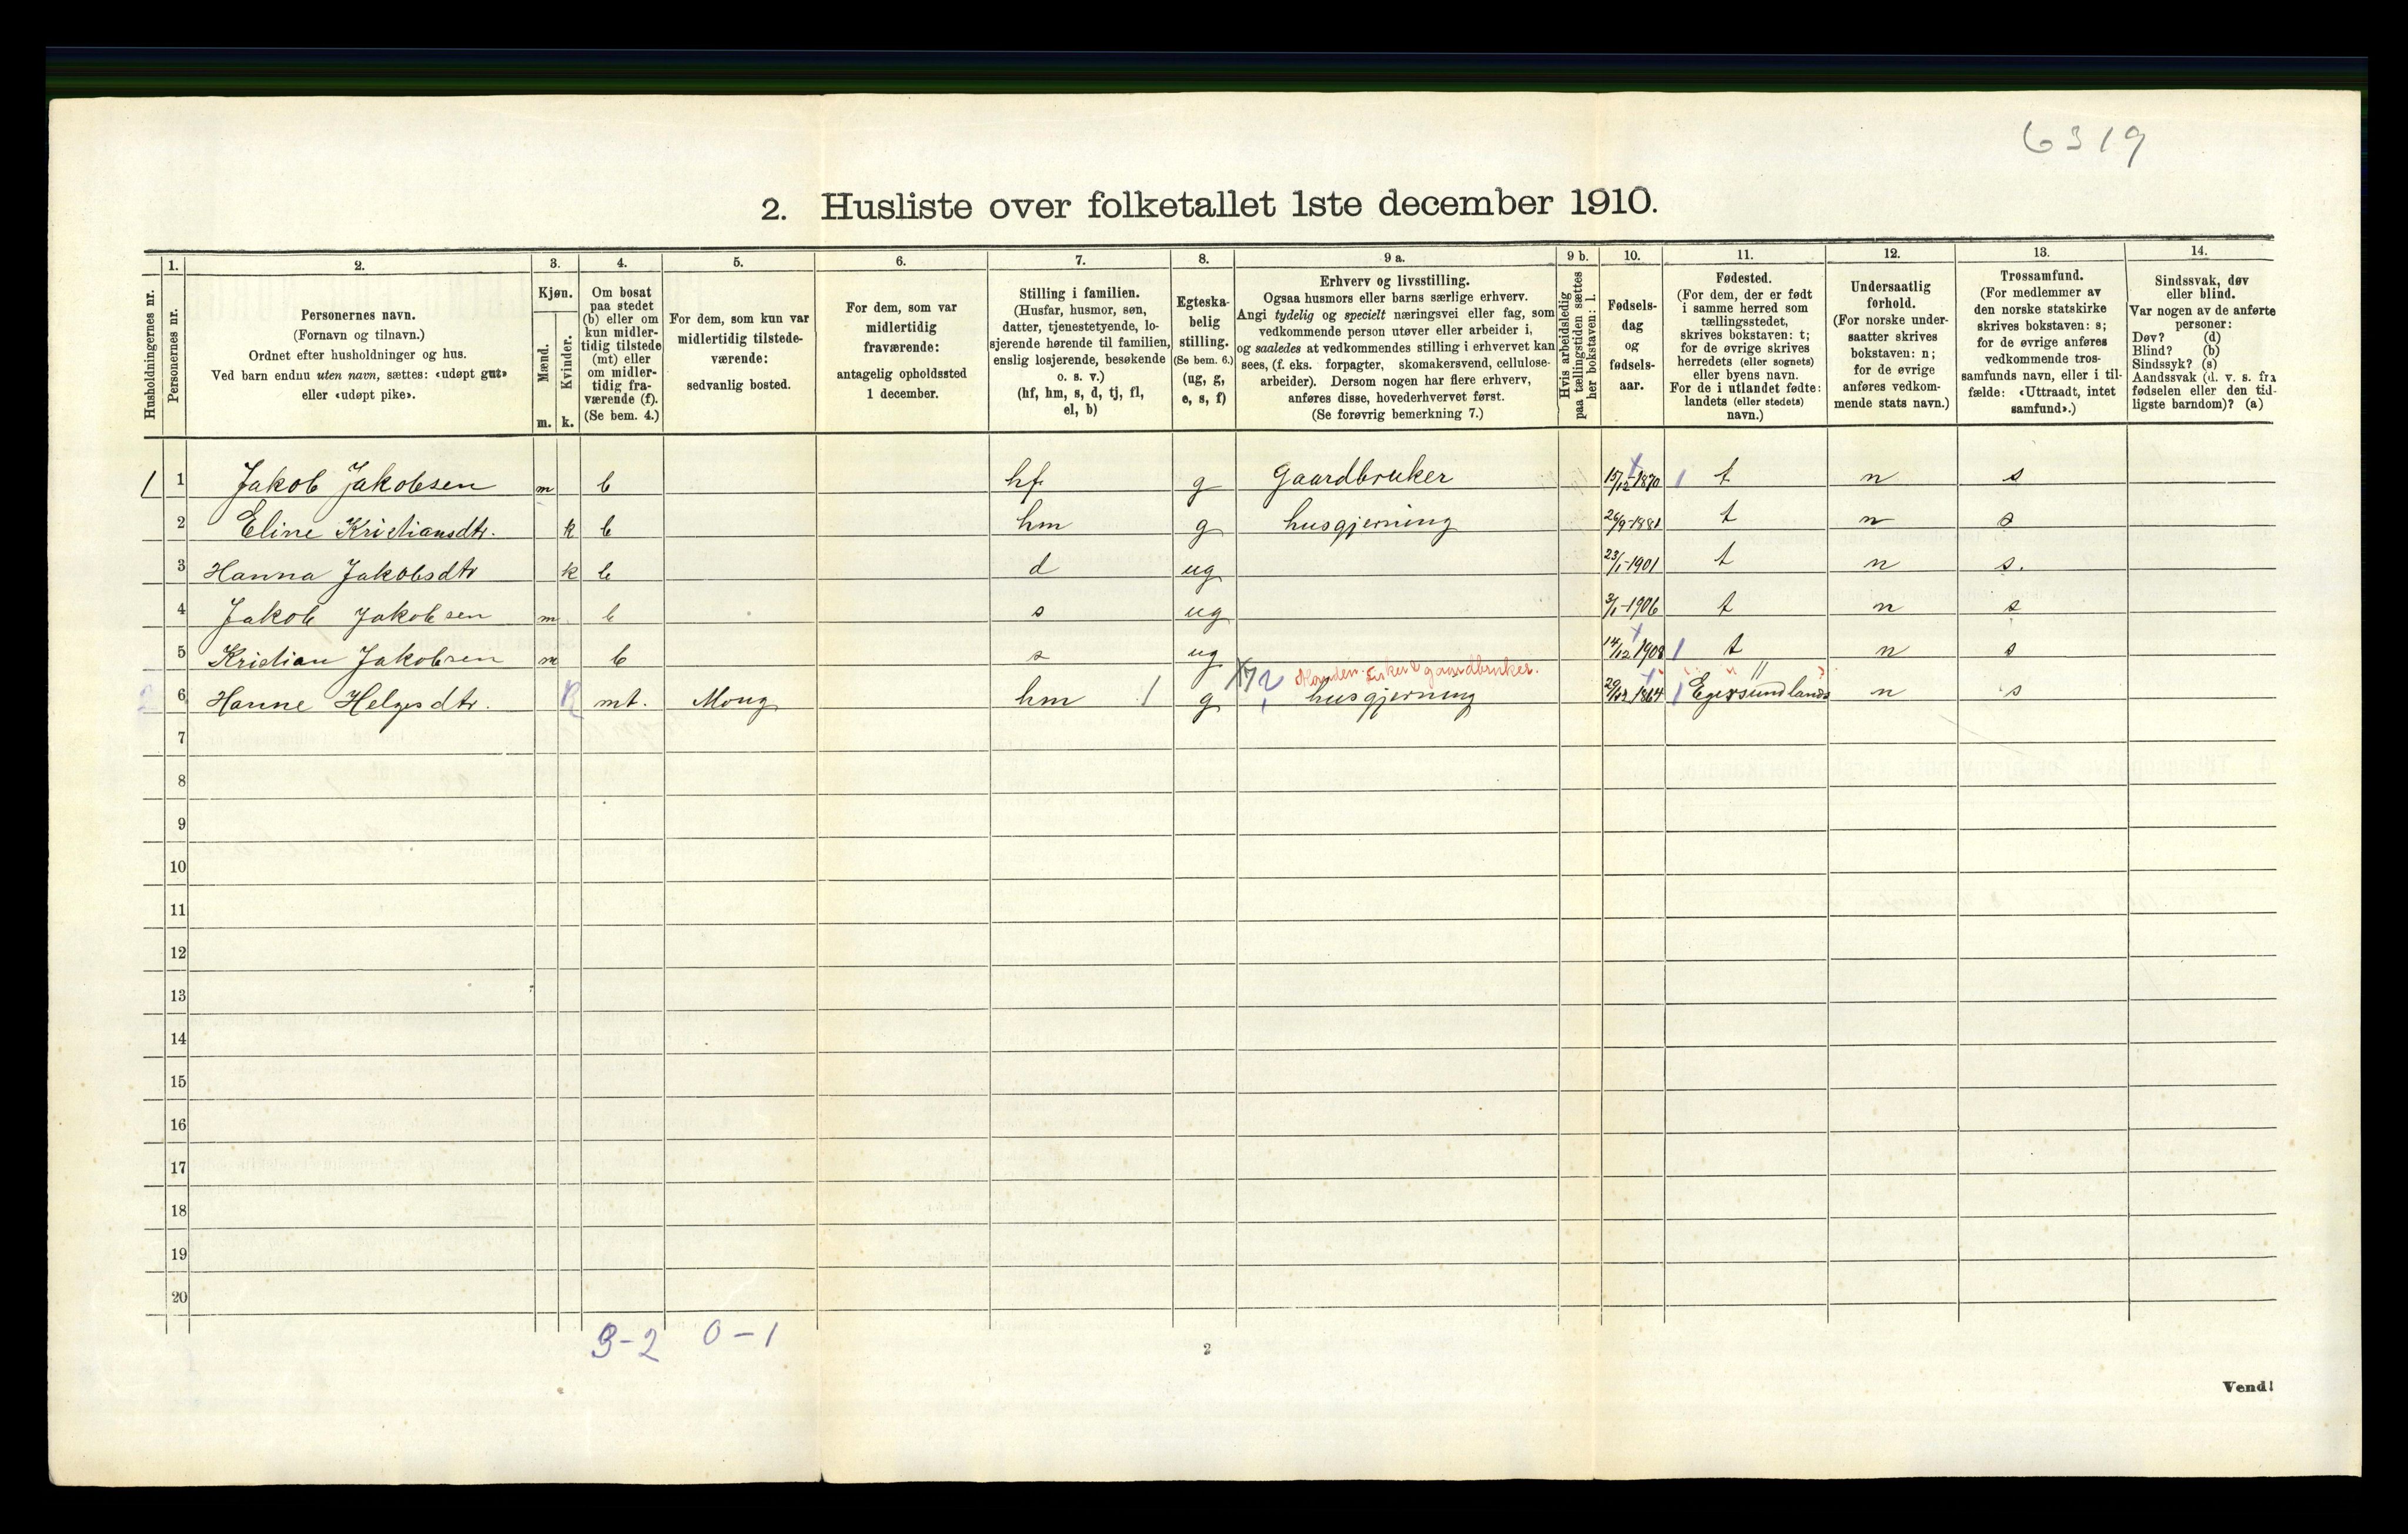 6319
2. Husliste over folketallet 1ste december 1910.
Husholdningernes nr.
1.
Personernes nr.
2.
Personernes navn.
(Fornavn og tilnavn.)
Ordnet efter husholdninger og hus.
Ved barn endnu uten navn, sættes: «udøpt gut»
eller «udøpt pike».
3.
Kjøn.
Mænd.
Kvinder.
m. k.
4.
Om bosat
paa stedet
(b) eller om
kun midler-
tidig tilstede
(mt) eller
om midler-
tidig fra-
værende (f).
(Se bem. 4.)
5.
For dem, som kun var
midlertidig tilstede-
værende:
sedvanlig bosted.
6.
For dem, som var
midlertidig
fraværende:
antagelig opholdssted
1 december.
7.
Stilling i familien.
(Husfar, husmor, søn,
datter, tjenestetyende, lo-
sjerende hørende til familien,
enslig losjerende, besøkende
o. s. v.)
(hf, hm, s, d, tj, fl,
el, b)
8.
Egteska-
belig
stilling.
(Se bem. 6.)
(ug, g,
e, s, f)
9 a.
Erhverv og livsstilling.
Ogsaa husmors eller barns særlige erhverv.
Angi tydelig og specielt næringsvei eller fag, som
vedkommende person utøver eller arbeider i,
og saaledes at vedkommendes stilling i erhvervet kan
sees, (f. eks. forpagter, skomakersvend, cellulose-
arbeider). Dersom nogen har flere erhverv,
anføres disse, hovederhvervet først.
(Se forøvrig bemerkning 7.)
9 b.
Hvis arbeidsledig
paa tællingstiden sættes
her bokstaven: l.
10.
Fødsels-
dag
og
fødsels-
aar.
11.
Fødested.
(For dem, der er født
i samme herred som
tællingsstedet,
skrives bokstaven: t;
for de øvrige skrives
herredets (eller sognets)
eller byens navn.
For de i utlandet fødte:
landets (eller stedets)
navn.)
12.
Undersaatlig
forhold.
(For norske under-
saatter skrives
bokstaven: n;
for de øvrige
anføres vedkom-
mende stats navn.)
13.
Trossamfund.
(For medlemmer av
den norske statskirke
skrives bokstaven: s;
for de øvrige anføres
vedkommende tros-
samfunds navn, eller i til-
fælde: «Uttraadt, intet
samfund».)
14.
Sindssvak, døv
eller blind.
Var nogen av de anførte
personer:
Døv? (d)
Blind? (b)
Sindssyk? (s)
Aandssvak (d. v. s. fra
fødselen eller den tid-
ligste barndom)? (a)
1 1 Jakob Jakobsen m b hf g Gaardbruker 15/12-1870 1 t n s
2 Eline Kristiansdtr. k b hm g husgjerning 26/9-1881 t n s
3 Hanna Jakobsdtr k b d ug 23/1-1901 t n s.
4 Jakob Jakobsen m b s ug 3/1-1906 t n s
5 Kristian Jakobsen m b s ug 14/12 1908 1 t n s
Manden fisker & gaardbruker.
2 6 Hanne Helgesdtr. k mt. Mong hm 1 g husgjerning 29/12 1864 1 Egersundlands n s
7
8
9
10
11
12
13
14
15
16
17
18
19
20
3-2 0-1
2
Vend!